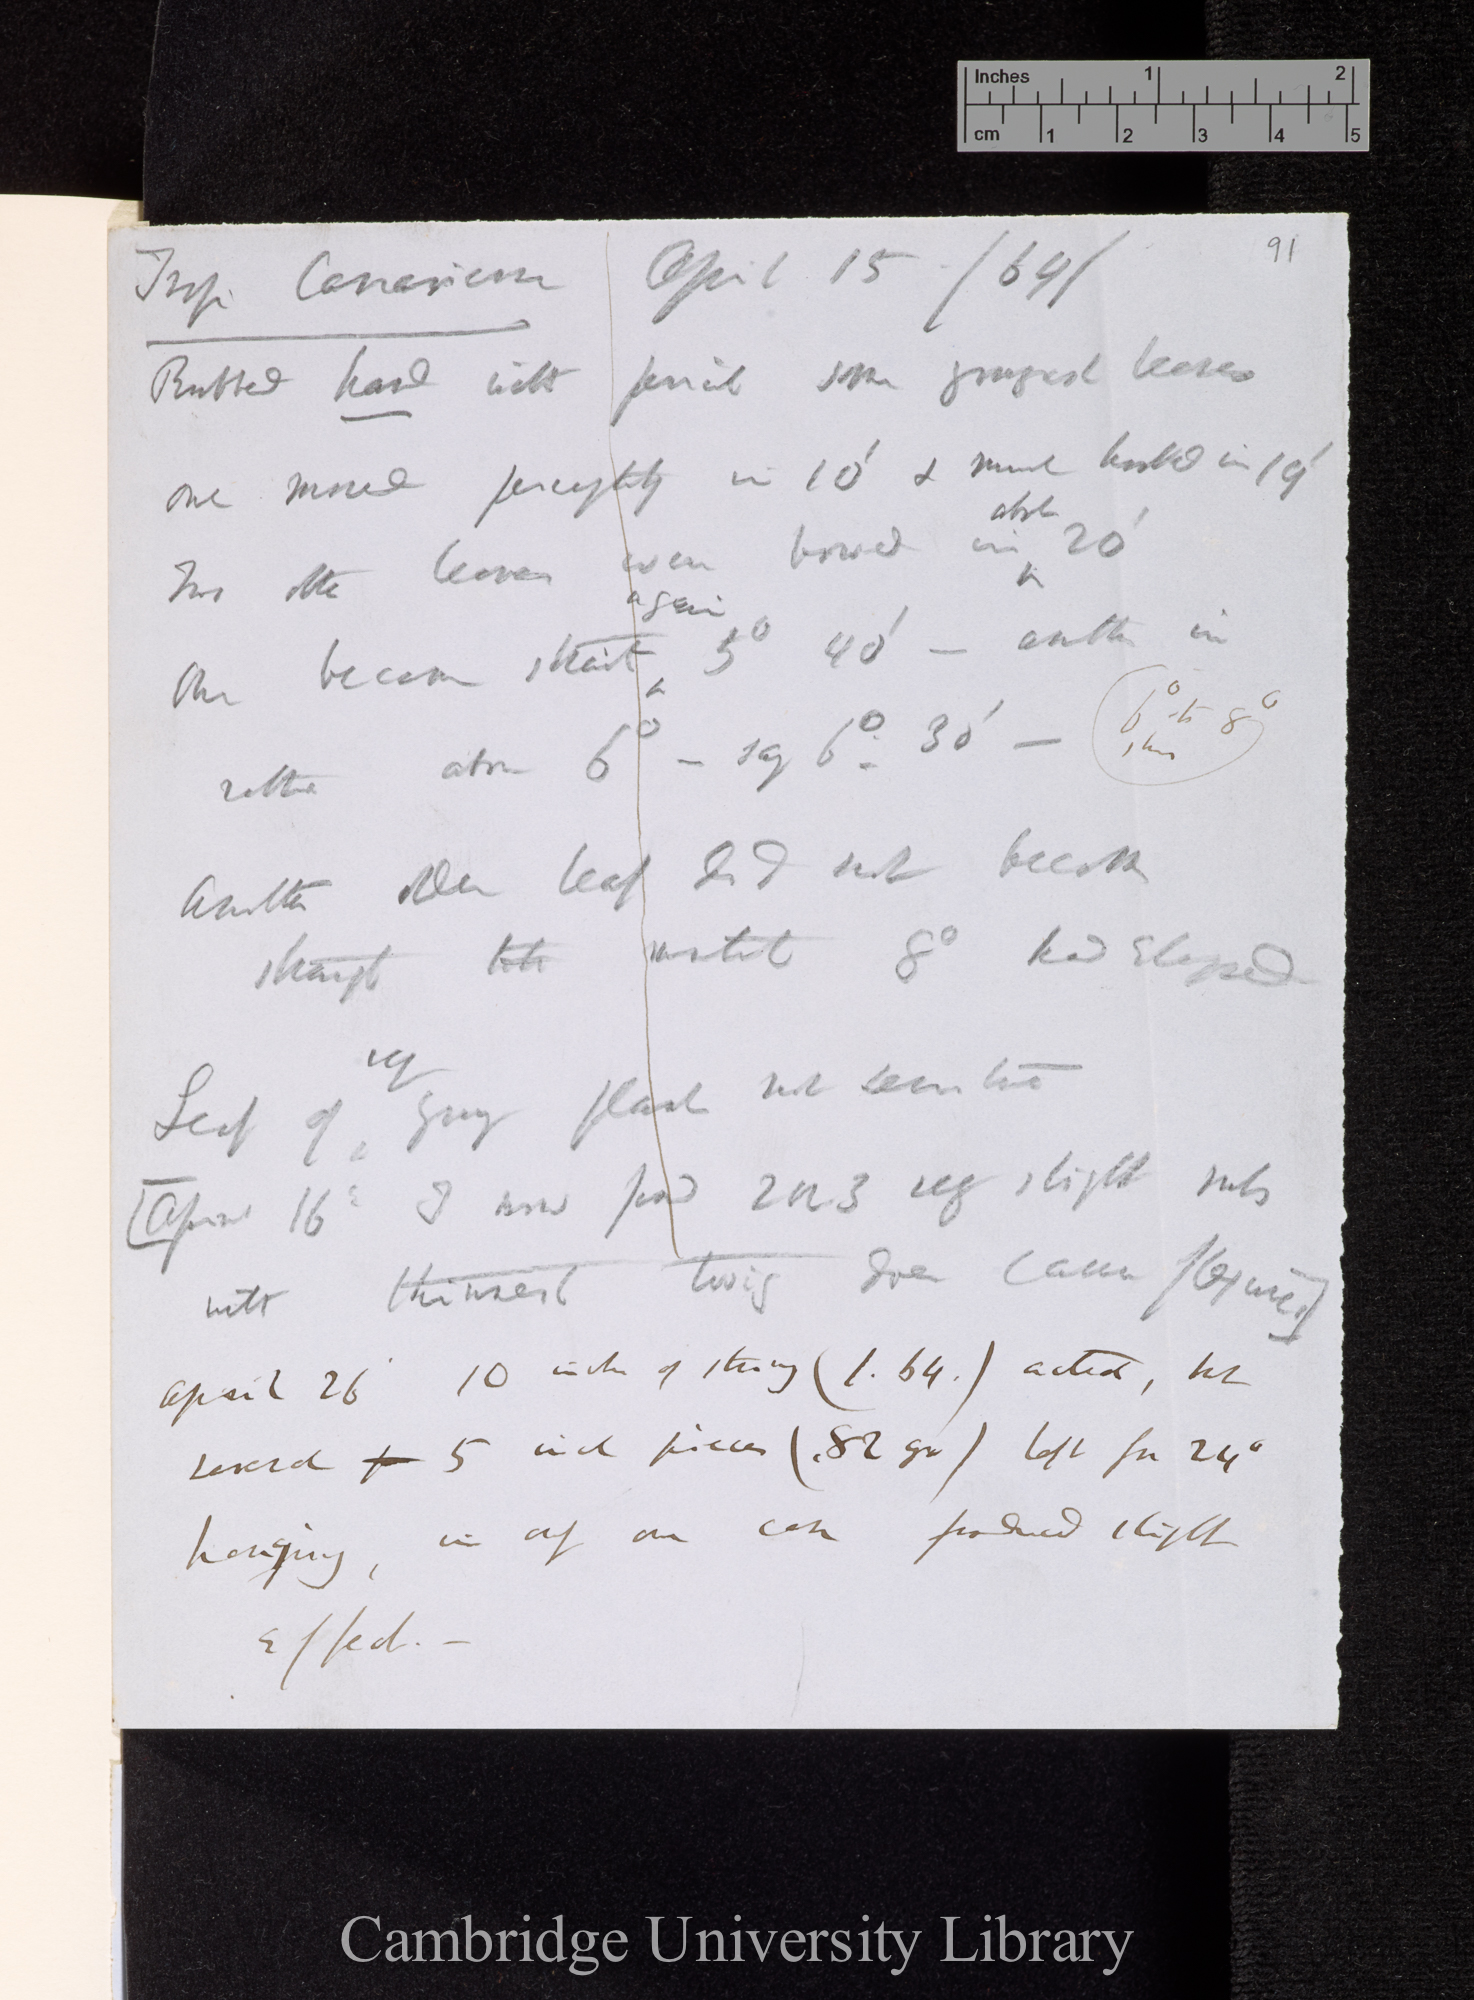 Inches 1 2
cm 1 2 3 4 5
91
Trop. Canariense April 15 /64/
Rubbed hard with pencil some youngest leaves
one moved perceptibly in 10' & much hooked in 19'
Two other leaves were bowed in about 20'
One became strait again 5° 40' — another in
rather above 6° — say 6° 30' — (6° to 8°
Another older leaf did not become
straight until 8° had elapsed
Leaf of very young plant not sensitive
[April 16° I now find 2 or 3 very slight rubs
with thinnest twig does cause flexure]
April 26 10 inches of string (1.64.) acted, but
several 5 inch pieces (.82 gr) left for 24°
hanging, in only one case produced slight
effect. —
Cambridge University Library